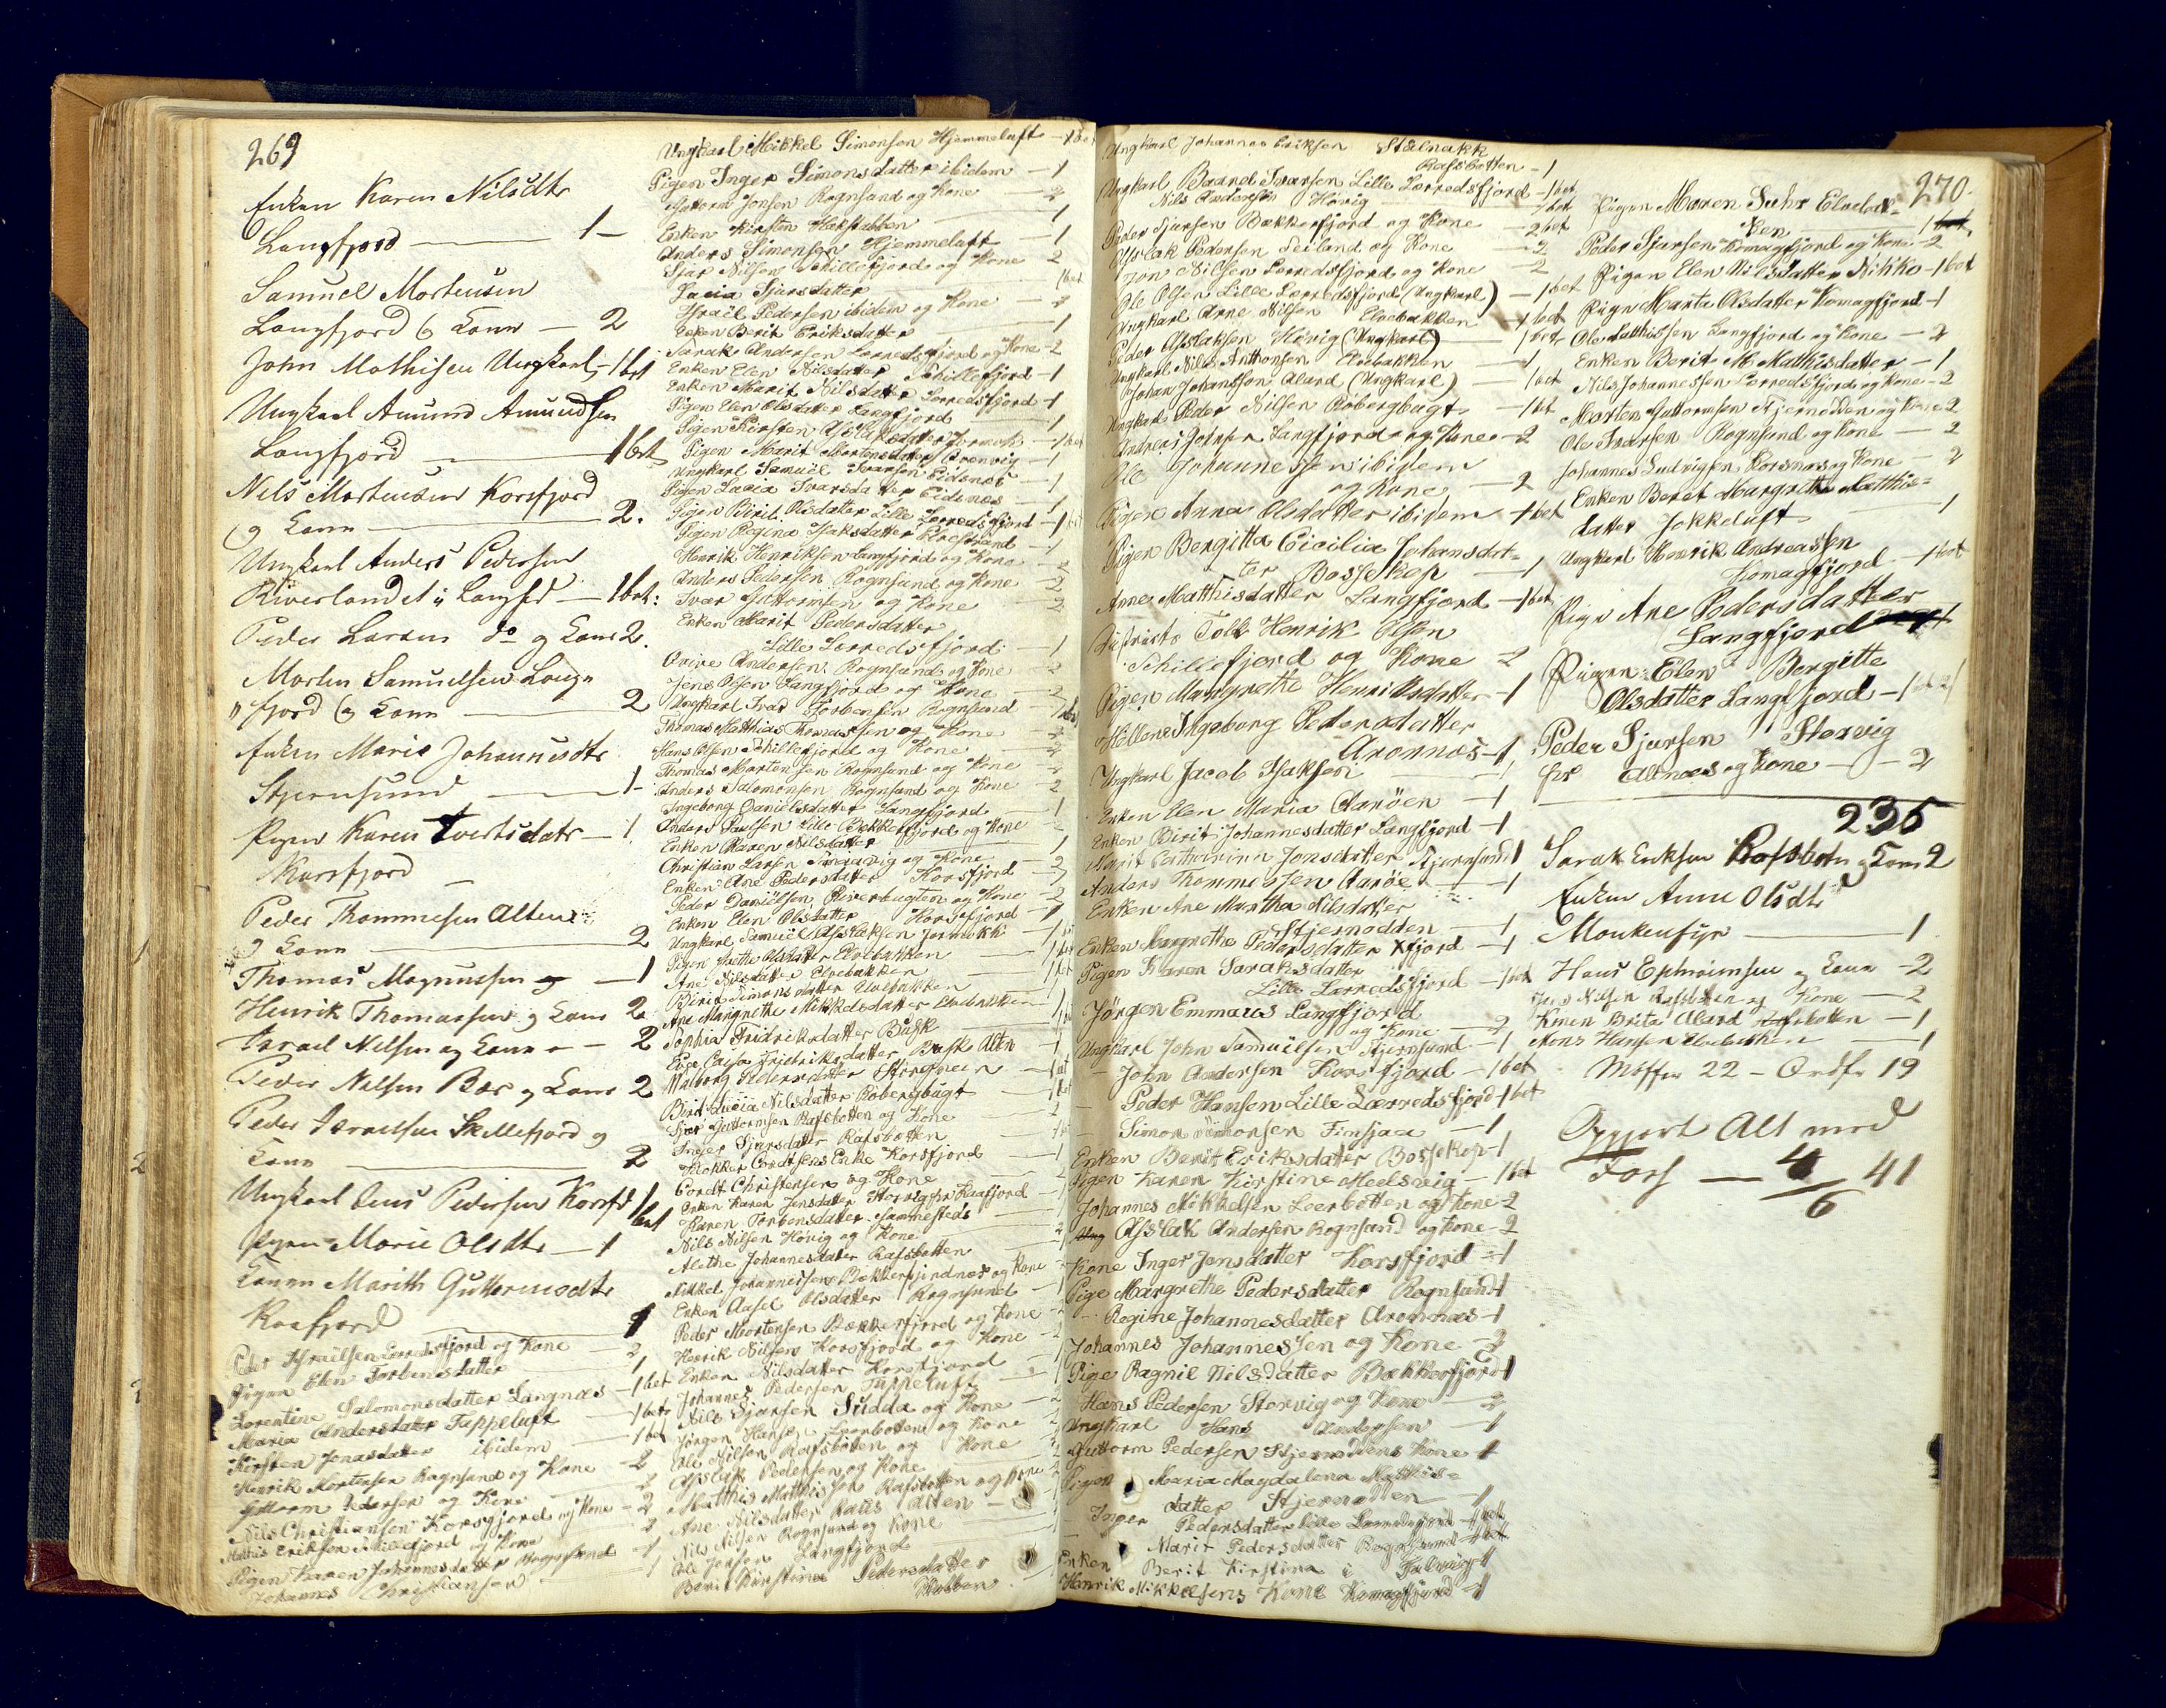 269
Enken Karen Nilsdtr
Langfjord — 1 —
Samuel Mortensen
Langfjord og Konn — 2
John Mathisen Ungkarl — 1 bet
Ungkarl Amund Amundsen
Langfjord — 1 bet
Nils Mortensen Korsfjord
og Konn — 2.
Ungkarl Anders Pedersen
Riverlandet i Langfd — 1 bet:
Peder Larsen do og Konn 2.
Morten Samuelsen Lang-
" fjord og Konn — 2
Enken Marie Johannisdtr
Stjernsund — 1 -
Pigen Karen Evertsdatr — 1.
Korsfjord —
Peder Thommesen Alten
og Konn — 2
Thomas Magnussen — 1
Henrik Thomassen og Konn 2
Israel Nilsen og Konn — 2
Peder Nilsen Bær og Konn 2
Peder Israelsen Skillefjord og
Konn — 2
Ungkarl Jens Pedersen Korsfd 1 bet
Pigen Marie Olsdtr — 1
Konen Marith Guttormsdtr
Kaafjord — 1
Peder Israelsen Lerredsfjord og Kone — 2
Pigen Elen Torbensdatter — 1
Lorentine Salomonsdatter Langnæs — 1 bet
Maria Andersdatter Tappeluft — 1 bet
Kirsten Jonasdatter ibidem — 1 bet
Henrik Mortensen Rognsund og Kone — 2
Guttorm Pedersen og Kone — 2
Nils Christiansen Korsfjord og Kone — 2
Mathis Eriksen Skillefjord og Kone — 2
Pigen Karen Johannesdatter Rognsund — 1
Johannes Christiansen — 1
Ungkarl Mikkel Simonsen Hjemmeluft — 1 bet
Pigen Inger Simonsdatter ibidem — 1
Guttorm Jonsen Rognsund og Kone — 2
Enken Kirsten Hakstabben — 1
Anders Simonsen Hjemmeluft — 1
Sjar Nilsen Schillefjord og Kone — 2
Lucia Sjursdatter — 1 bet
Israël Pedersen ibidem og Kone — 2
Enken Berit Eriksdatter — 1
Sarak Andersen Lerredsfjord og Kone — 2
Enken Elen Nilsdatter Schillefjord — 1
Enken Marit Nilsdatter Lerredsfjord — 1
Pigen Elen Olsdatter Langfjord — 1
Pigen Kirsten Aslaksdatter Jormekk — 1 bet
Pigen Marit Mortensdatter Qvenvig — 1
Ungkarl Samuël Ivarsen Eidenæs — 1
Pigen Lucia Ivarsdatter Eidenæs — 1
Pigen Birit Olsdatter Lille Lerredsfjord — 1 bet
Pigen Regina Isaksdatter Elvestrand — 1
Henrik Henriksen Langfjord og Kone — 2
Anders Pedersen Rognsund og Kone — 2
Ivar Guttormsen og Kone — 2
Enken Marit Pedersdatter
Lille Lerredsfjord — 1
Qvive Andersen Rognsund og Kone — 2
Jens Olsen Langfjord og Kone — 2
Ungkarl Ivar Torbensen Rognsund — 1 bet
Thomas Matthias Thomassen og Kone — 2
Hans Olsen Schillefjord og Kone — 2
Thomas Mortensen Rognsund og Kone — 2
Anders Salomonsen Rognsund og Kone — 2
Ingeborg Danielsdatter Langfjord — 1
Anders Paulsen Lille Bekkerfjord og Kone — 2
Enken Karen Nilsdatter — 1
Christian Larsen og Kone — 2
Enken Ane Pedersdatter Korsfjord — 1
Peder Daniëlsen Riverbugten og Kone — 2
Enken Elen Olsdatter Korsfjord — 1
Ungkarl Samuël Aslaksen Jormekk — 1 bet
Pigen Grethe Olsdatter Elvebakken — 1 bet
Ane Nilsdatter Elvebakken — 1 bet
Birit Simonsdatter Elvebakken — 1
Ane Margrethe Mikkelsdatter Elvebakken — 1
Sophia Fridriksdatter Busk — 1
Eva Caisa Fridriksdatter Busk Altn — 1
Valborg Pedersdatter Storsteen — 1 bet
Birit Lucia Nilsdatter Robergbugt — 1 bet
Sjar Guttormsen Rafsbotten og Kone — 2
Inger Sjursdatter Rafsbotten — 1
Klokker Cordtsens Enke Korsfjord — 1
Cordt Christensen og Kone — 2
Enken Karen Jensdatter Storvig fr Kaafjord — 1
Karen Torbensdatter sammesteds — 1
Nils Nilsen Hövig og Kone — 2
Alethe Johannesdatter Rafsbotten — 1
Mikkel Johannessen Bekkerfjordnes og Kone — 2
Enken Aasel Olsdatter Rognsund — 1
Peder Mortensen Bekkerfjord og Kone — 2
Henrik Nilsen Korsfjord og Kone — 2
Enken Nilsdatter Korsfjord — 1
Johannes Pedersen Tappeluft — 1
Nils Sjursen Sudda og Kone — 2
Jørgen Hansen Leerbotten og Kone — 2
Ole Nilsen Rafsbotten og Kone — 2
Aslak Pedersen og Kone — 2
Matthis Matthissen Rafsbotten og Kone — 2
Ane Nilsdatter Raus Alten — 1
Nils Nilsen Rognsund og Kone — 2
Ole Jonsen Langfjord — 1
Berit Kirstina Pedersdatter
Klubben — 1
270.
Ungkarl Johannes Eriksen Stælnakk
Rafsbotten — 1
Ungkarl Baard Ivarsen Lille Lerredsfjord — 1 bet
Nils Andersen Hövig — 1 bet
Peder Sjursen Bekkerfjord og Kone — 2 bet
Aslak Pedersen Seiland og Kone — 2
Jon Nilsen Lerredsfjord og Kone — 2
Ole Olsen Lille Lerredsfjord (Ungkarl) — 1 bet
Ungkarl Arne Nilsen Elvebakken — 1 bet
Peder Aslaksen Hövig (Ungkarl) — 1 bet
Ungkarl Nils Anthonsen Elvebakken — 1
Johan Johanssen Aland (Ungkarl) — 1 bet
Ungkarl Peder Nilsen Robergbugt — 1 bet
Andreas Johnsen Langfjord og Kone — 2
Ole Johannessen ibidem
og Kone — 2
Pigen Anna Olsdatter ibidem — 1 bet
Pigen Bergitta Cicilia Johansdat-
ter Bossekop — 1
Anne Matthisdatter Langfjord — 1 bet
Districts Tolk Henrik Olsen
Schillefjord og Kone — 2
Pigen Margrethe Henriksdatter — 1
Hellene Ingeborg Pedersdatter
Aronnæs — 1
Ungkarl Jacob Isaksen — 1
Enken Elen Maria Aarøen — 1
Enken Birit Johannesdatter Langfjord — 1
Marit Catharina Jonsdatter Stjernsund 1
Anders Thommessen Aarøe — 1
Enken Ane Martha Nilsdatter
Stjernodden — 1
Enken Margrethe Pedersdatter Kfjord — 1
Pigen Karen Saraksdatter
Lille Lerredsfjord — 1 bet
Jörgen Emmaus Langfjord
og Kone — 2
Ungkarl John Samuëlsen Stjernsund — 1
— John Andersen Korsfjord — 1 bet
— Peder Hansen Lille Lærredsfjord — 1 bet
— Simon Simonsen Finsjaa — 1
Enken Berit Eriksdatter Bossekop — 1
Pigen Karen Kirstine Meelsvig — 1 bet
Johannes Mikkelsen Leerbotten og Kone — 2
Aslak Andersen Rognsund og Kone — 2
Kone Inger Jensdatter Korsfjord — 1
Pige Margrethe Pedersdatter Rognsund 1
— Regine Johannesdatter Aronnæs — 1
Johannes Johannessen og Kone — 2
Pige Ragnil Nilsdatter Bekkerfjord 1
Hans Pedersen Storvig og Kone — 2
Ungkarl Hans Andersen — 1
Guttorm Pedersen Stjernoddens Kone 1
Pigen Maria Magdalena Matthis-
datter Stjernodden — 1
Inger Pedersdatter Lille Lerredsfjord — 1 bet
— Marit Pedersdatter Rognsund — 1 bet
Enken Berit Kirstina i Talvig — 1
Henrik Mikkelsens Kone Komagfjord — 1
Pigen Maren Suhr Elvebak-
ken — 1 bet.
Peder Sjursen Komagfjord og Kone — 2
Pigen Elen Nilsdatter Nikko — 1 bet
Pigen Marta Olsdatter Komagfjord — 1
Ole Matthissen Langfjord og Kone — 2
Enken Berit M. Matthisdatter — 1
Nils Johannessen Lerredsfjord og Kone — 2
Morten Guttormsen Stjernodden og Kone 2
Ole Ivarsen Rognsund og Kone — 2
Johannes Ludvigsen Korsnæs og Kone — 2
Enken Beret Margrethe Matthis-
datter Jokkeluft — 1
Ungkarl Henrik Andreassen
Komagfjord — 1 bet
Pige Ane Pedersdatter
Langfjord
Pigen Elen Bergitte
Olsdatter Langfjord — 1 bet
Peder Sjursen Storvig
fr Altnæs og Kone — 2
235
Sarak Eriksen Rafsbotn og Konn 2
Enken Anne Olsdtr
Monkensfyr — 1
Hans Ephraimsen og Konn — 2
Jens Nilsen Rafsbotten og Kone — 2
Konen Brita Aland Rafsbotten — 1
Mons Hansen Elvebakken — 1
Möffer 22 — Ordfr 19
Opgjort Alt med
Fors — 4 41
6